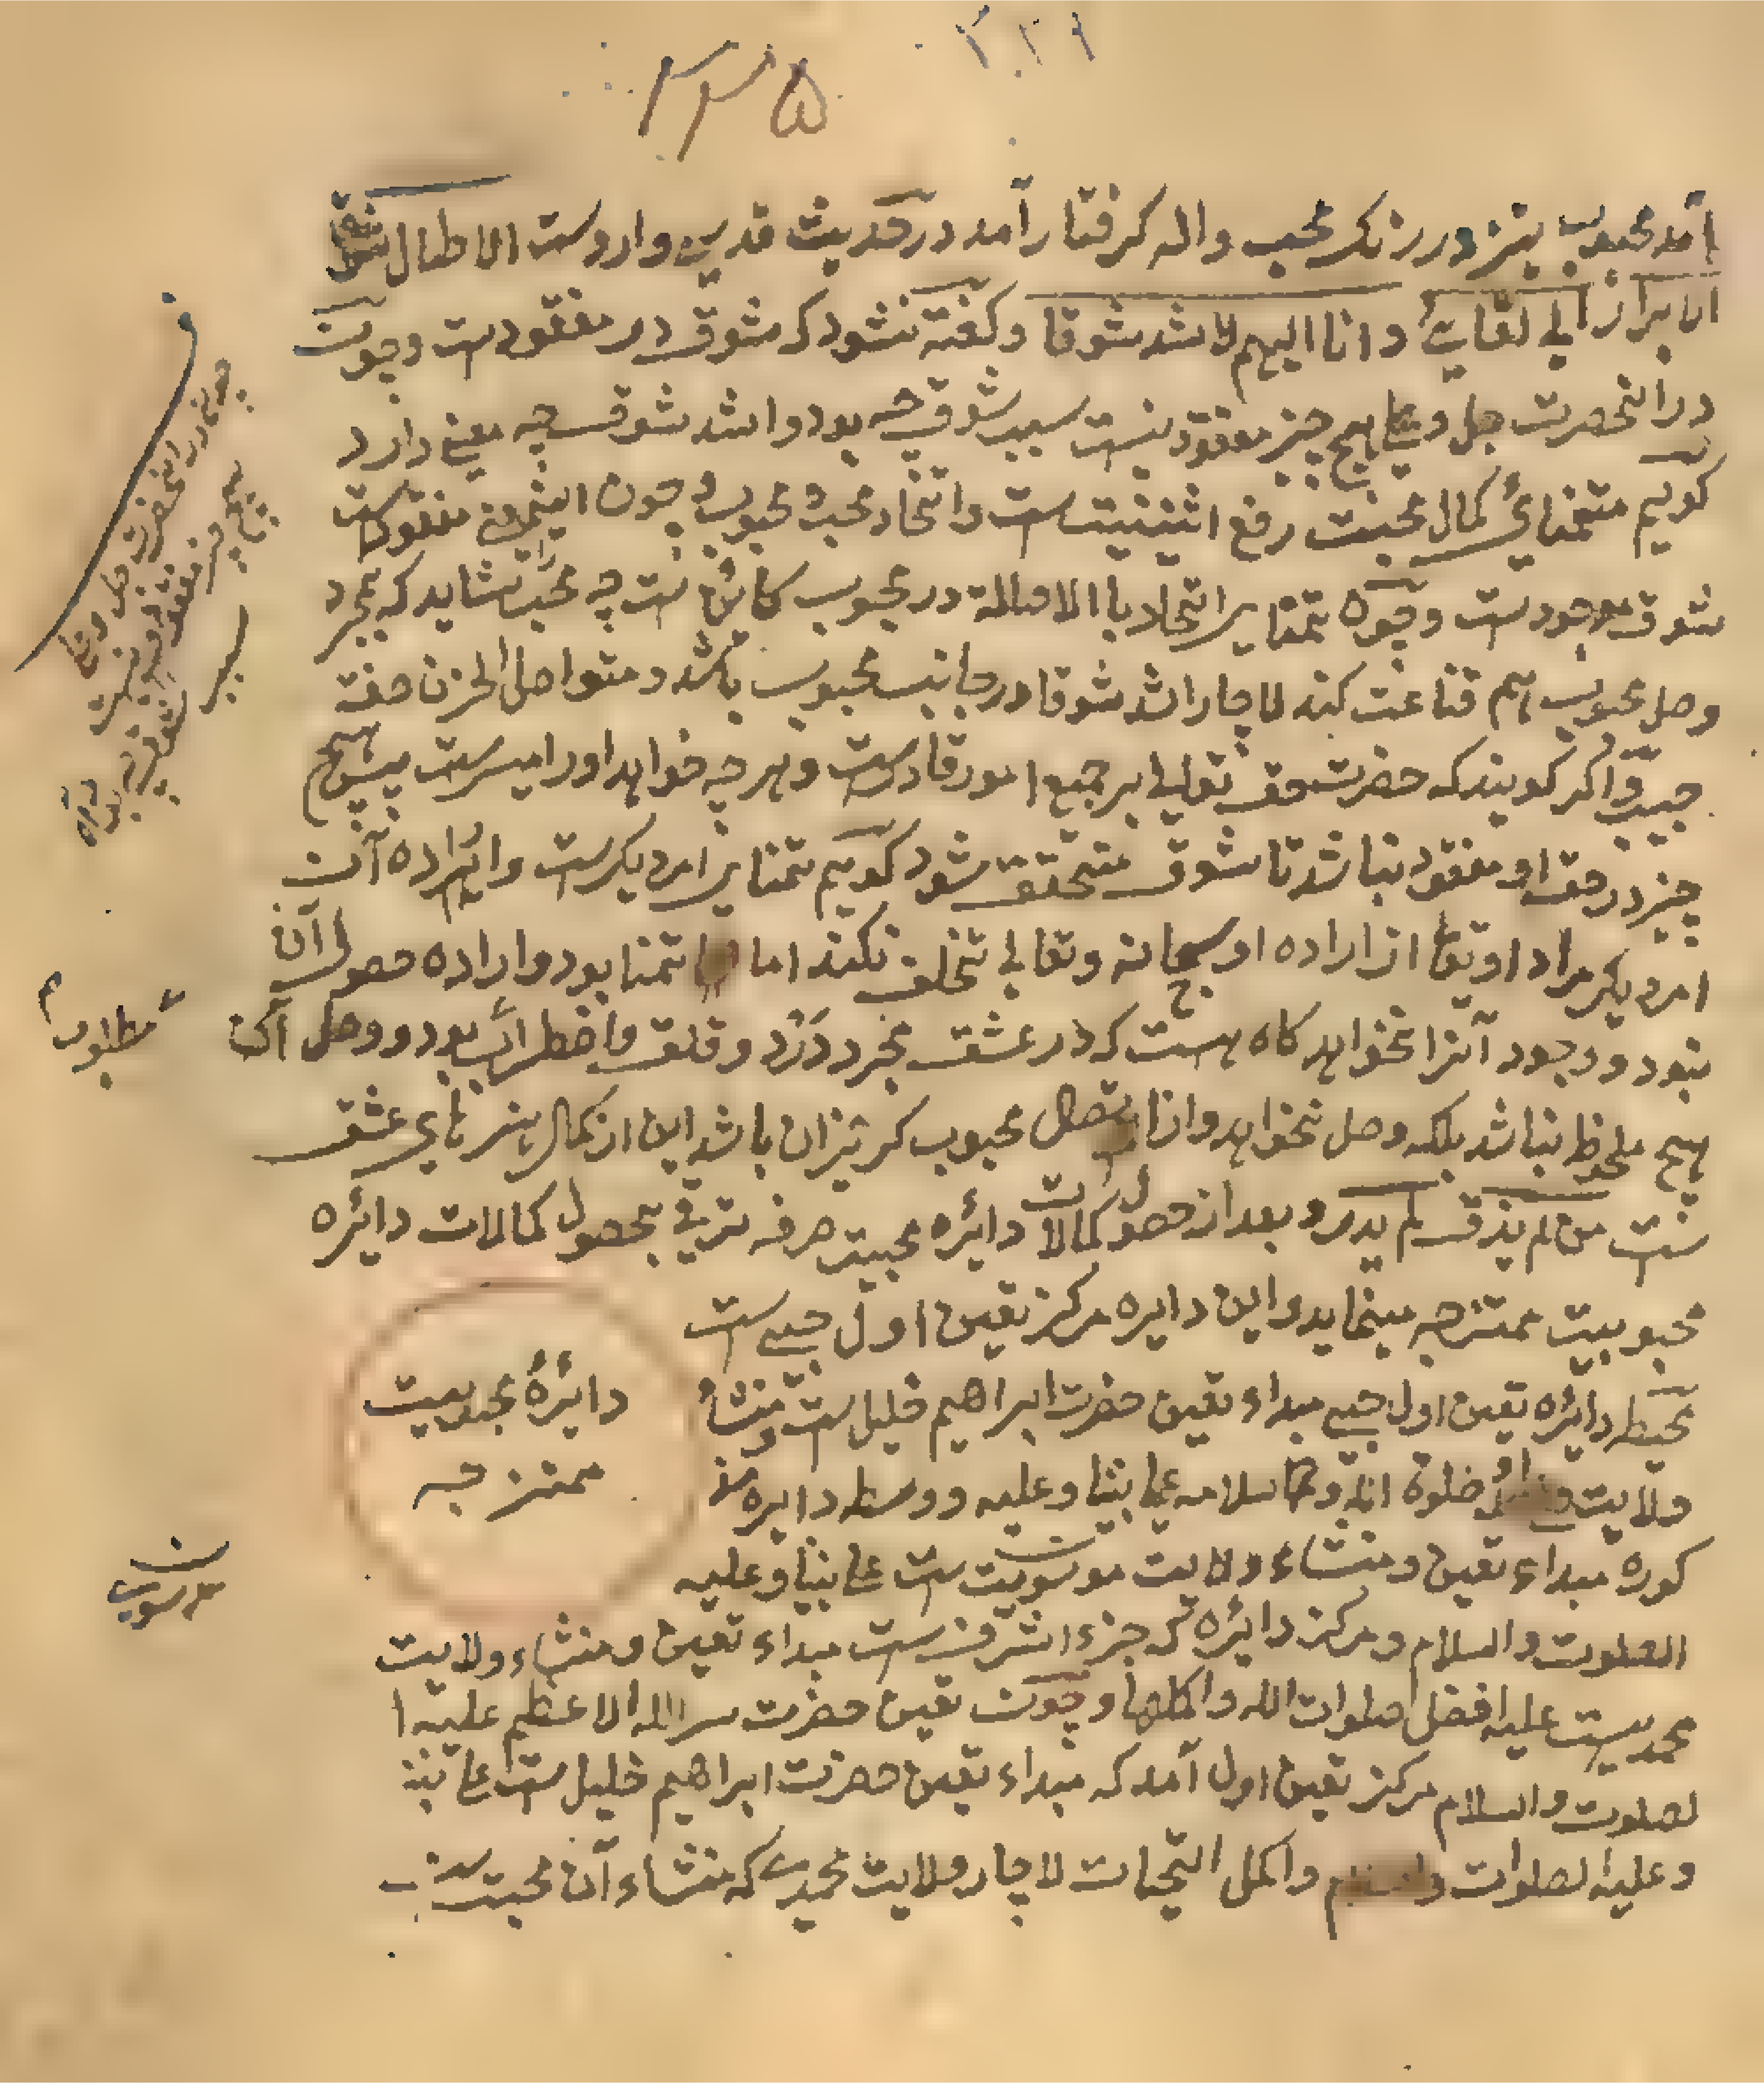 ۳۳۵
آمد محبوب نیز در رنک محب واله کرفتار آمد در حدیث قدسی وارد ست الا طال شوق
الابرار الی لقایی و انا الیهم لاشد شوقا و کفته نشود که شوق در مفقود ست و چون
در انحضرت جل و علا هیچ چیز مفقود نیست سبب شوق چه بود و اشد شوق چه معنی دارد
کویم مقتضای کمال محبت رفع اثنینیت ست و اتحاد محب و محبوب و چون این معنی مفقود ست
شوق موجود ست و چون تمنای اتحاد با الاصالة در محبوب کائن ست چه محب شاید که بمجرد
وصل محبوب هم قناعت کند لاچار اشد شوقا در جانب محبوب باشد و متواصل الحزن صفت
حبیب و اکر کویند که حضرت حق تعالی بر جمیع امور قادر ست و هرچه خواهد او را میسر ست پس هیچ
چیز در حق او مفقود نباشد تا شوق متحقق شود کویم تمنای امر دیکر ست و اراده آن
امر دیکر مراد او تعا از اراده او سبحانه و تعالی تخلف نکند اما تمنا بود و اراده حصول آن
نبود و وجود آنرا نخواهد کاه هست که در عشق مجرد درد و قلق و اضطراب بود و وصل آن
هیچ ملحوظ نباشد بلکه وصل نخواهد و از اتصال محبوب کریزان باشد این از کمال هنرهای عشق
ست من لم یذق لم یدر و بعد از حصول کمالات دایره محبیت صرفه ترقی بحصول کمالات دایره
محبوبیت ممتزجه مینماید و این دایره مرکز تعین اول حبی ست
محیط دایره تعین اول حبی مبداء تعین حضرت ابراهیم خلیل ست و منشأ
ولایت صلوة الله و سلامه علی نبینا و علیه و وسط دایره مذ
کوره مبداء تعین و منشاء ولایت موسویت ست علی نبینا و علیه
الصلوت والسلام و مرکز دایره که جزء اشرف ست مبداء تعین و منشاء ولایت
محمدیست علیه افضل صلوات الله واکملها و چون تعین حضرت سر الله الاعظم علیه ا
لصلوت والسلام مرکز تعین اول آمد که مبداء تعین حضرت ابراهیم خلیل ست علی نبینا
وعلیه الصلوات والسلام واکمل التحیات لاچار ولایت محمدی که منشاء آن محبت ست
دایرهٔ محبوبیت
ممتزجه
چون در انحضرت جل و علا
هیچ چیز مفقود نیست
سبب شوق چه بود
مطلوب